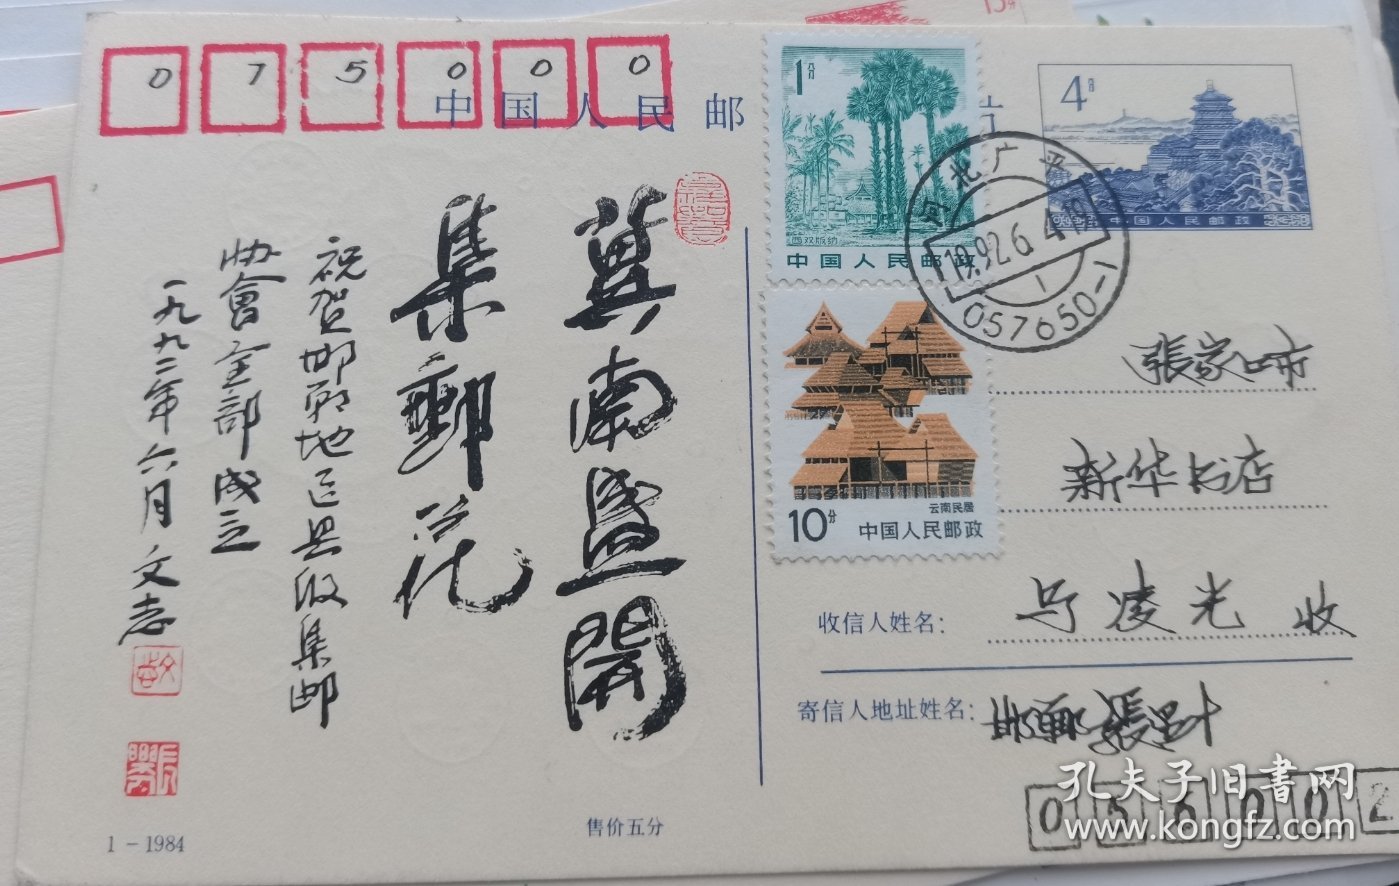 15分
075000
中国人民邮
冀南盛開
集郵花
祝贺邯郸地区县级集邮
协會全部成立
一九九二年六月 文志
1-1984
售价五分
1分
西双版纳
中国人民邮政
10分
云南民居
中国人民邮政
4分
中国人民邮政
河北广平
1992.6.4.19
1
057650-1
張家口市
新华书店
凌光 收
收信人姓名：
寄信人地址姓名：
056002
孔夫子旧書网
www.kongfz.com